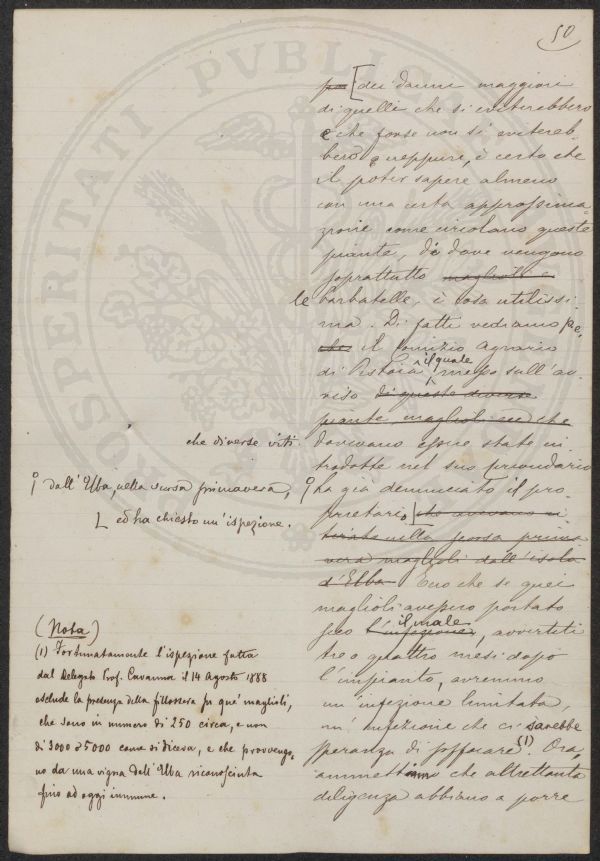 50
po [dei danni maggiori
di quelli che si eviterebbero
e che forse non si eviterebbero
neppure, è certo che
il poter sapere almeno
con una certa approssima-
zione come circolano queste
piante, di dove vengono
soprattutto maglioli e
le barbatelle, è cosa utilissi-
ma. Di fatti vediamo pe,
che il Comizio Agrario
di Pistoia il quale messo sull'av-
viso di queste diverse
piante maglioli ecc. che
che diverse viti dovevano essere state in-
trodotte nel suo circondario
dall'Elba, nella scorsa primavera, ha già denunciato il pro-
prietario, [che avevano in
ed ha chiesto un'ispezione.
tirato nella scorsa prima
vera maglioli dall'isola
d'Elba. Ecco che se quei
maglioli avessero portato
seco l'infezione il male, avvertiti
tre o quattro mesi dopo
l'impianto, avremmo
un'infezione limitata,
un'infezione che ci sarebbe
speranza di soffocare (1). Ora,
ammettiamo che altrettanta
diligenza abbiano a porre
(Nota)
(1) Fortunatamente l'ispezione fatta
dal Delegato Prof. Cavanna il 14 Agosto 1888
esclude la presenza della fillossera su que' maglioli,
che sono in numero di 250 circa, e non
di 3000 o 5000 come si diceva, e che provengo-
no da una vigna dell'Elba riconosciuta
fino ad oggi immune.
PROSPERITATI PVBLICAE